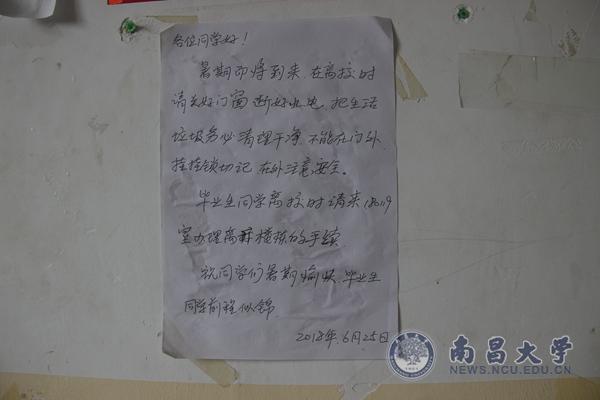 各位同学好！
暑期即将到来,在离校时
请关好门窗,断好水电,把生活
垃圾务必清理干净,不能在门外
挂挂锁切记,在外注意安全。
毕业生同学离校时请来
室办理离 手续
祝同学们暑期愉快,毕业生
同学前程似锦
2018年.6月25日
南昌大学
NEWS.NCU.EDU.CN